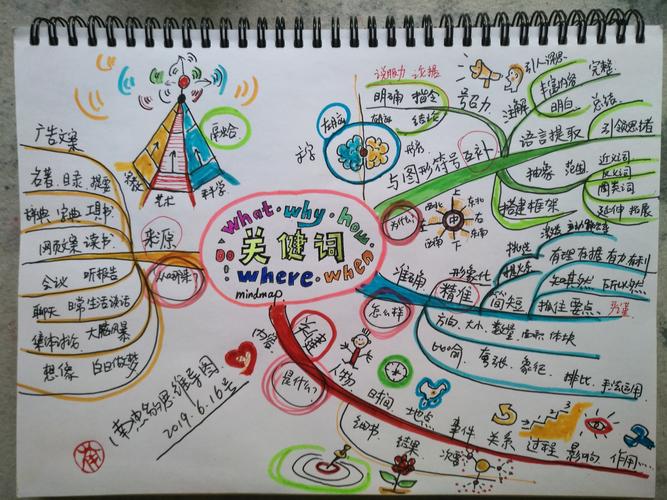 what·why·how
关键词
where·when
mindmap
联络
宗教
艺术
科学
来源
从哪来?
广告文案
名著 目录 提要
辞典 宝典 工具书
网页文案 读书
会议 听报告
聊天 日常生活谈话
集体讨论 大脑风暴
想像 白日做梦
为什么?
与图形符号互补
左脑
右脑
文字
形象
上
下
东北
东
东南
西南
西
西北
说服力 证据
明确 指令
号召力
结论
注解
引人深思
丰富内容 完整
明白 总结
语言提取
引领思绪
抽象 范围
近义词
反义词
关英词
搭建框架
延伸 拓展
怎么样
准确 形象化
精准
简短
有理有据 有力有利
知其然 所以然
抓住要点
方向、大小、数量、面积、体块
比喻 夸张、象征 排比、手法运用
是什么?
内容
人物
时间
地点
事件
关系
过程
影响
作用……
细节
结果
次要
思维导图
2019.6.16号